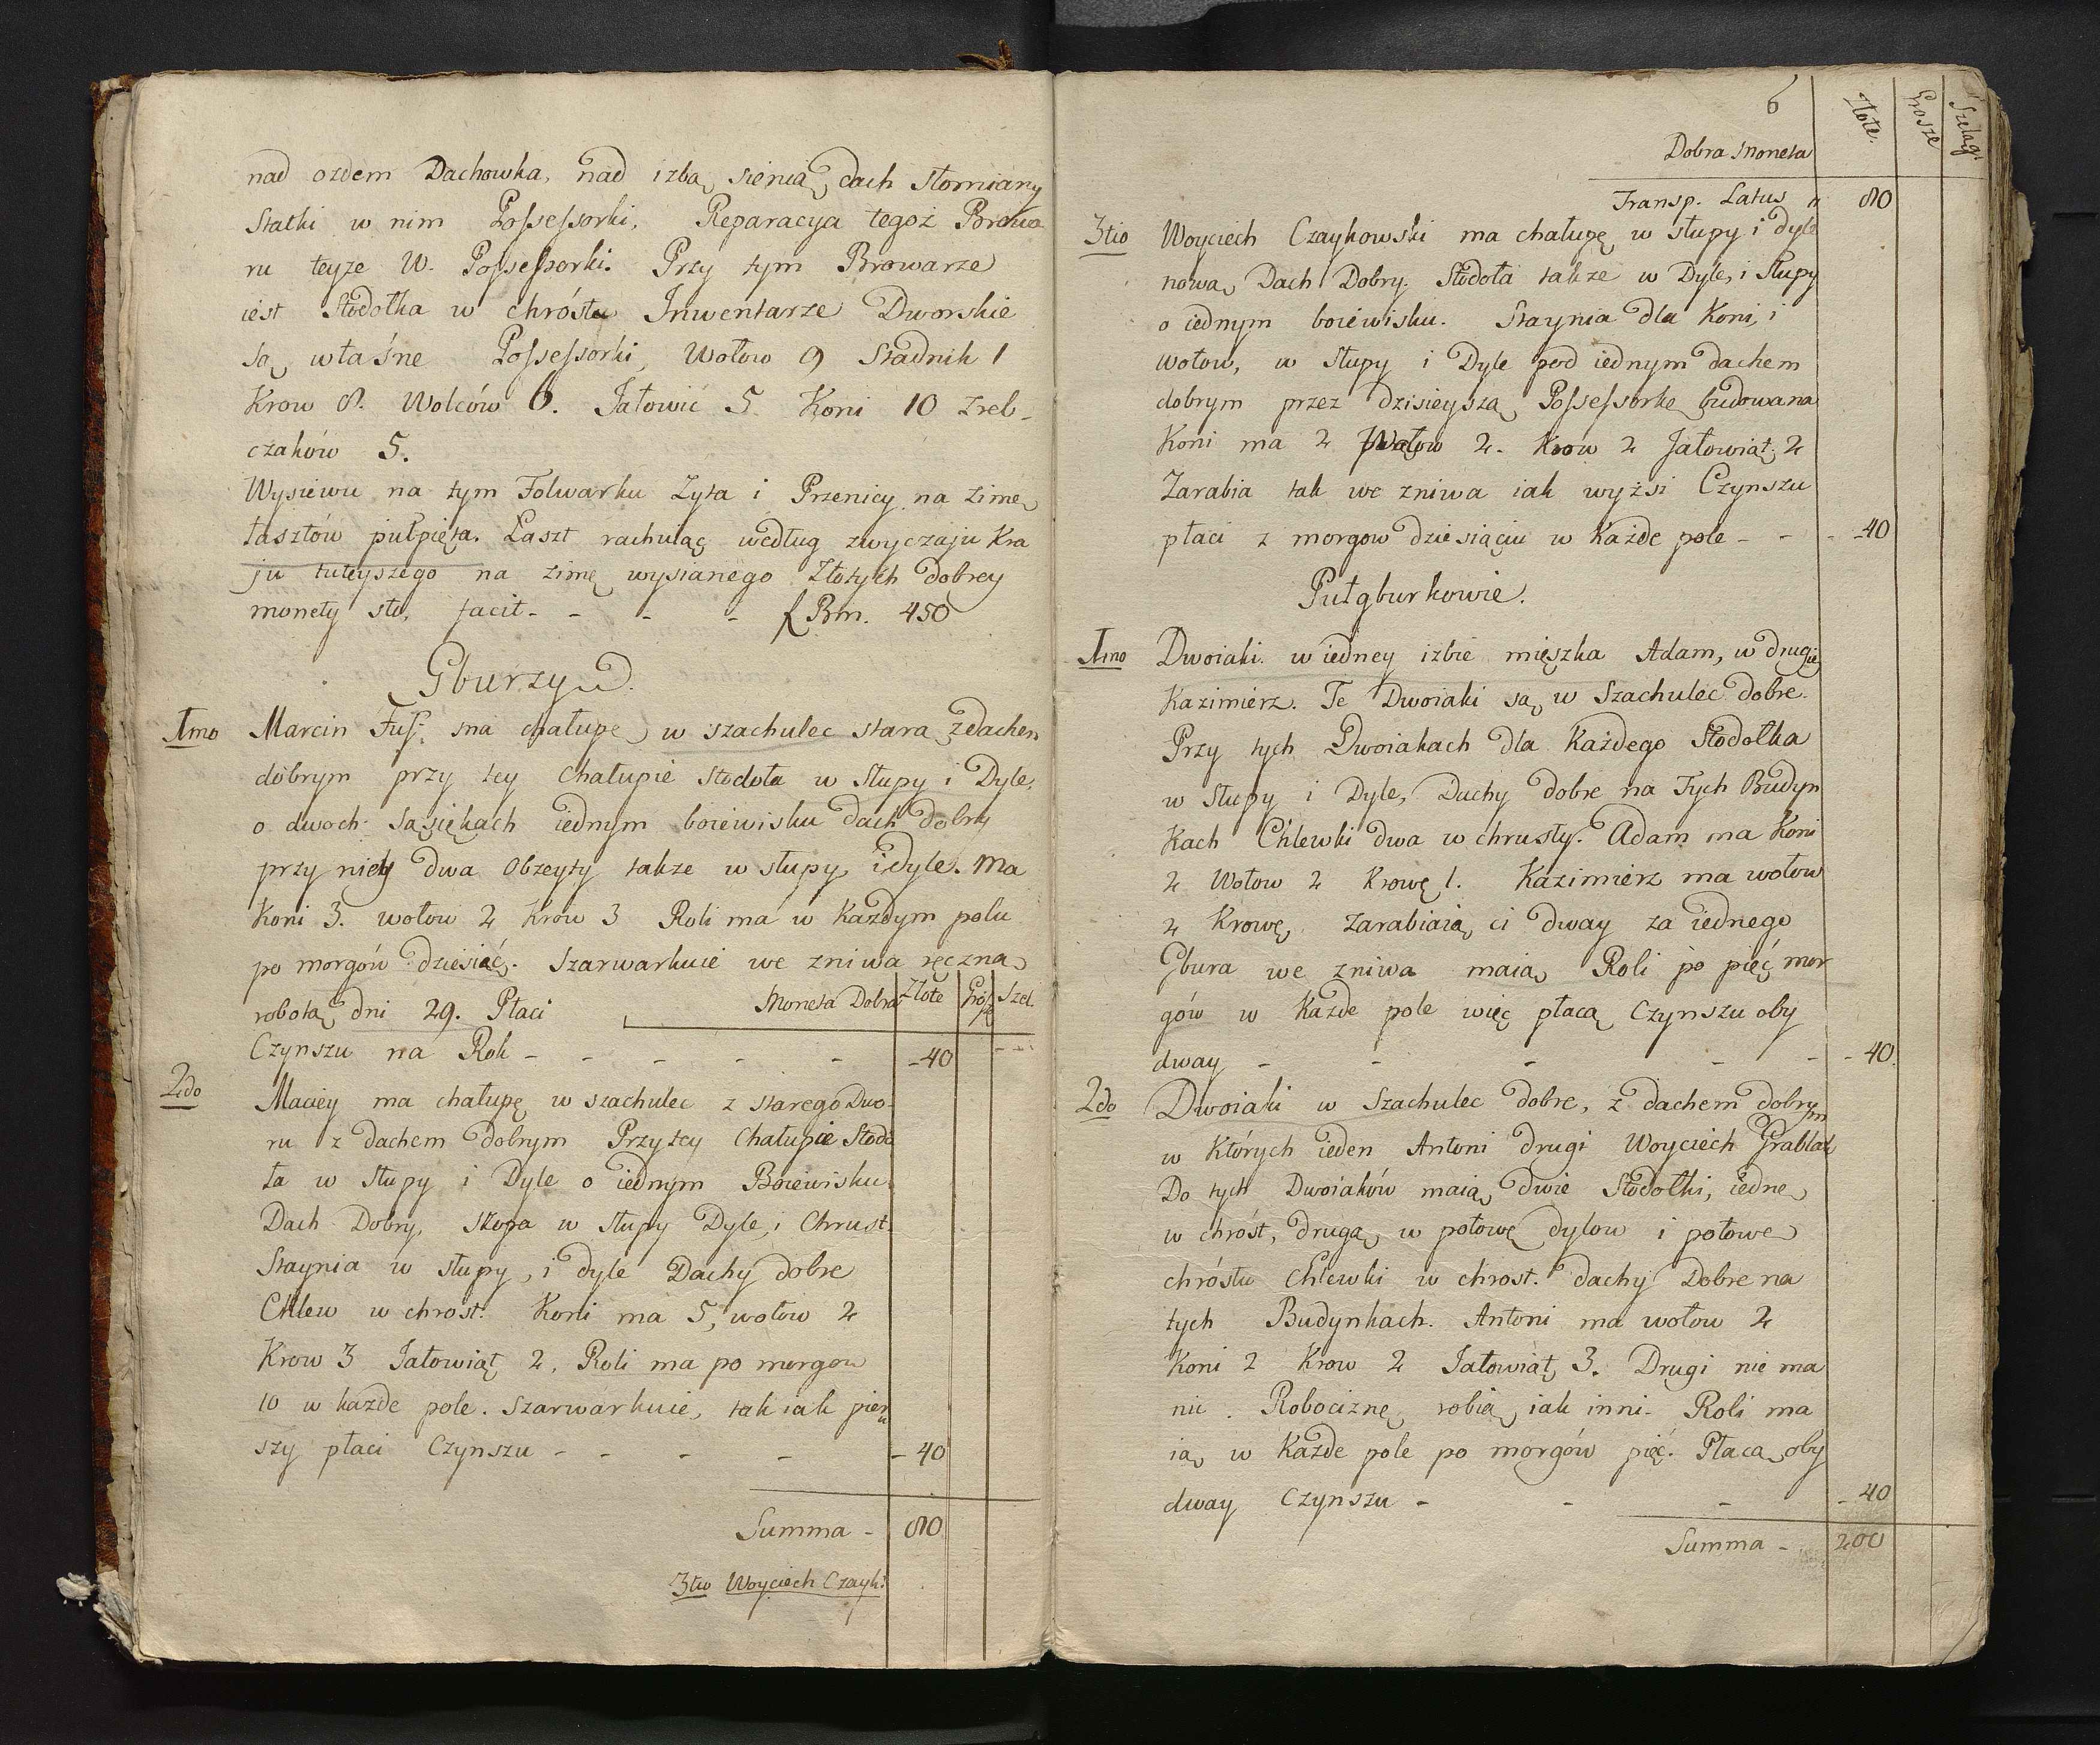 nad ozdem Dachowka, nad izbą sienią dach słomiany
Statki w nim Possessorki, Reparacya tegoż Browa
ru teyze W. Possessorki. Przy tym Browarze
iest Stodołka w chróstu Inwentarze Dworskie
są właśne Possessorki, Wołow 9 Stadnik 1
Krow 8. Wolców 6. Jałowic 5. Koni 10 zreb-
czaków 5.
Wysiewu na tym Folwarku Zyta i Przenicy na zimę
łasztów pułpięta. Łaszt rachuiąc według zwyczaju Kra
ju tuteyszego na zimę wysianego Złotych dobrey
monety sto, facit - - - - f Bm. 450
Gburzy
1mo Marcin Fus. ma chałupę w szachulec stara z dachem
dobrym przy tey chałupie stodoła w słupy i Dyle,
o dwoch sąsiękach iednym boiewisku dach dobry
przy niey dwa Obzeyty takze w słupy i dyle. ma
Koni 3. wołow 2 Krow 3 Roli ma w Każdym polu
po morgów dziesiać. Szarwarkuie we zniwa ręczną
robotą dni 29. Płaci Moneta Dobra Złote Grosze Szel.
Czynszu na Rok - - - - - - 40
2do Maciey ma chałupę w szachulec z starego Dwo-
ru z dachem dobrym Przy tey Chałupie Stodo
ła w słupy i Dyle o iednym Boiewisku.
Dach Dobry, szopa w słupy Dyle, i Chrust.
Staynia w słupy, i dyle Dachy dobre
Chlew w chrost. Koni ma 5, wołow 2
Krow 3 Jałowiąt 2, Roli ma po morgow
10 w każde pole. Szarwarkuie, tak iak pierw
szy płaci Czynszu - - - - - 40
Summa - 80
3tio Woyciech Czayk:
6
Złote. Grosze Szelągi
Dobra Moneta
Transp. Latus 80
3tio Woyciech Czaykowski ma chałupę w słupy i dyle
nową, Dach Dobry. Stodoła takze w Dyle, i Słupy
o iednym boiéwisku. Staynia dla Koni, i
wołow, w słupy i Dyle pod iednym dachem
dobrym przez dzisieyszą Possessorkę budowana
Koni ma 2 Wołow 2. Krow 2 Jałowiąt. 2
Zarabia tak we zniwa iak wyżsi Czynszu
płaci z morgow dziesiąciu w Każde pole - - - 40
Pułgburkowie.
1mo Dwoiaki. w iedney izbie mięszka Adam, w drugiey
Kazimierz. Te Dwoiaki są w Szachulec dobre.
Przy tych Dwoiakach dla Każdego Stodołka
w słupy i Dyle, Dachy dobre na Tych Budyn
kach Chlewki dwa w chrusty. Adam ma Koni
2 Wołow 2 Krowę 1. Kazimierz ma wołow
2 Krowę. Zarabiaią ci dway za iednego
Gbura we zniwa maią Roli po pięć mor
gów w Każde pole więc płacą Czynszu oby
dway - - - - - 40
2do Dwoiaki w Szachulec dobre, z dachem dobrym
w Których ieden Antoni drugi Woyciech Grablak
Do tych Dwoiaków maią dwie Stodołki, iednę
w chróst, drugą w połowę dylow i połowę
chróstu Chlewki w chrost. dachy Dobre na
tych Budynkach. Antoni ma wołow 2
Koni 2 Krow 2 Jałowiąt 3. Drugi nie ma
nic. Robociznę robią iak inni. Roli ma
ią w Każde pole po morgów pięć. Płacą oby
dway Czynszu - - - - 40
Summa - 200